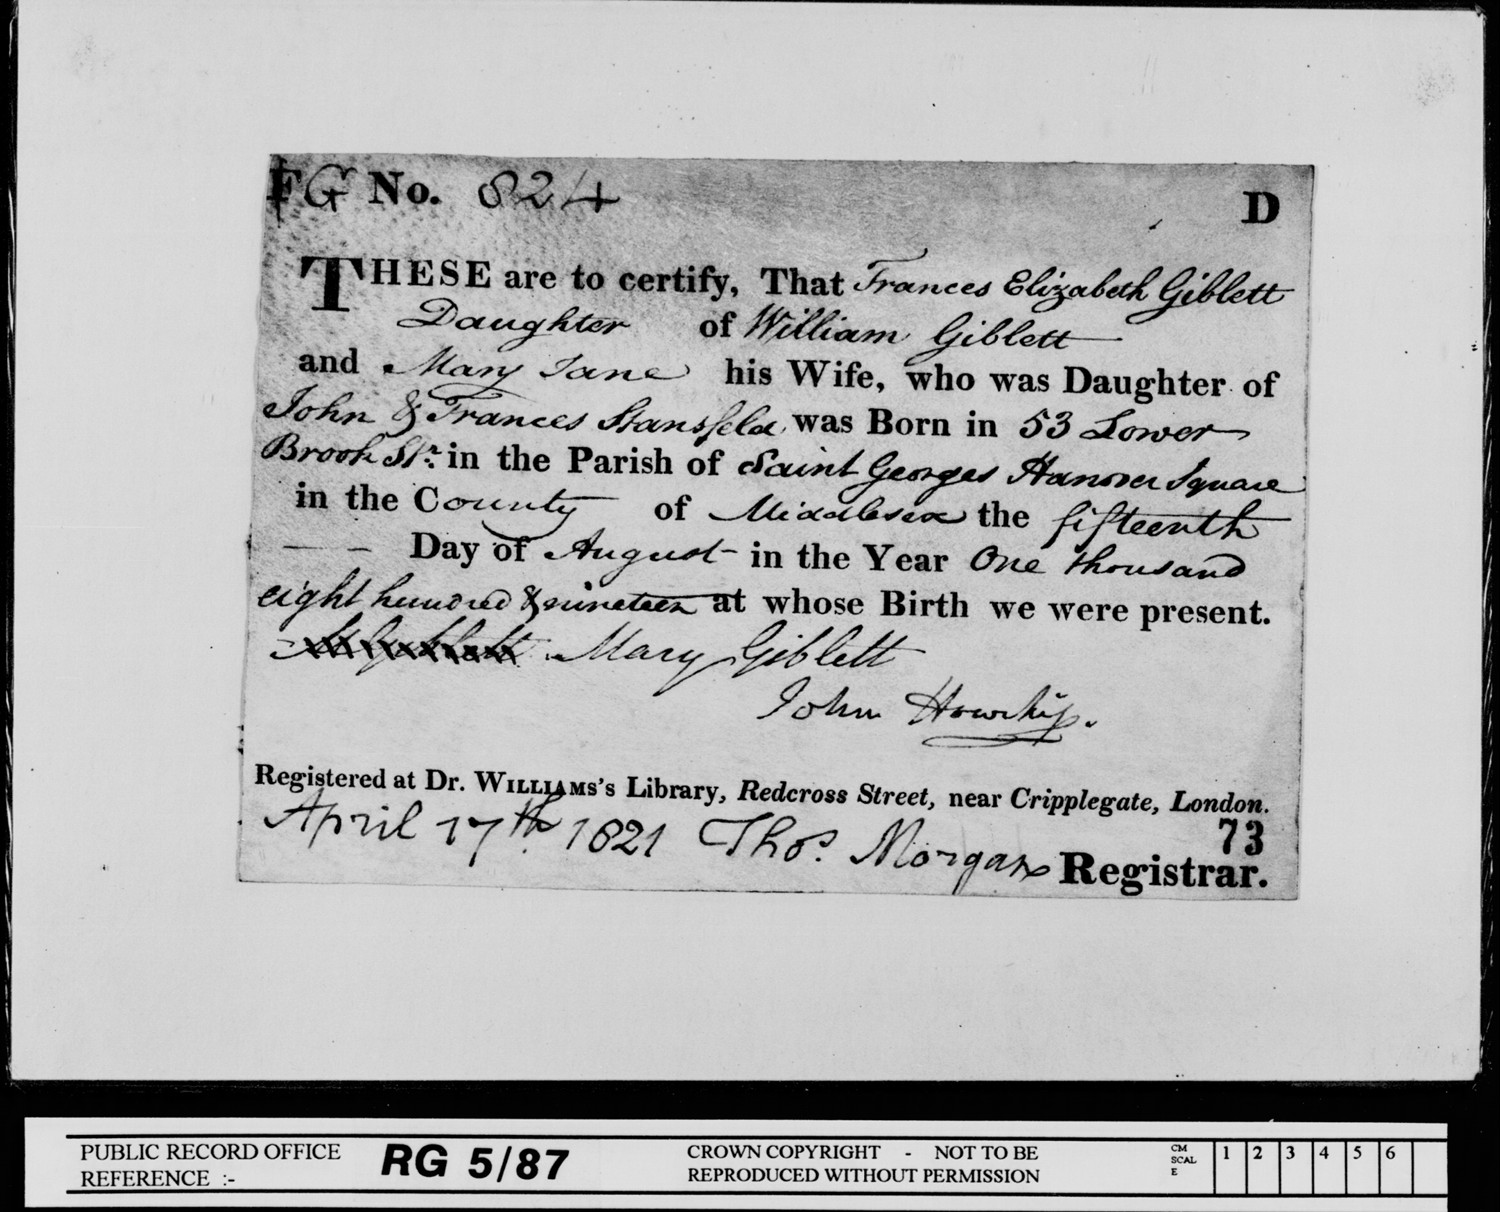 FG No. 824 D
THESE are to certify, That Frances Elizabeth Giblett
Daughter of William Giblett
and Mary Jane his Wife, who was Daughter of
John & Frances Stansfeld was Born in 53 Lower
Brook St. in the Parish of Saint Georges Hanover Square
in the County of Middlesex the fifteenth
Day of August in the Year One thousand
eight hundred & nineteen at whose Birth we were present.
Mary Giblett
John Howship.
Registered at Dr. WILLIAMS's Library, Redcross Street, near Cripplegate, London.
73
April 17th 1821 Thos. Morgan Registrar.
PUBLIC RECORD OFFICE
REFERENCE :-
RG 5/87
CROWN COPYRIGHT - NOT TO BE
REPRODUCED WITHOUT PERMISSION
CM
SCAL
E
1 2 3 4 5 6